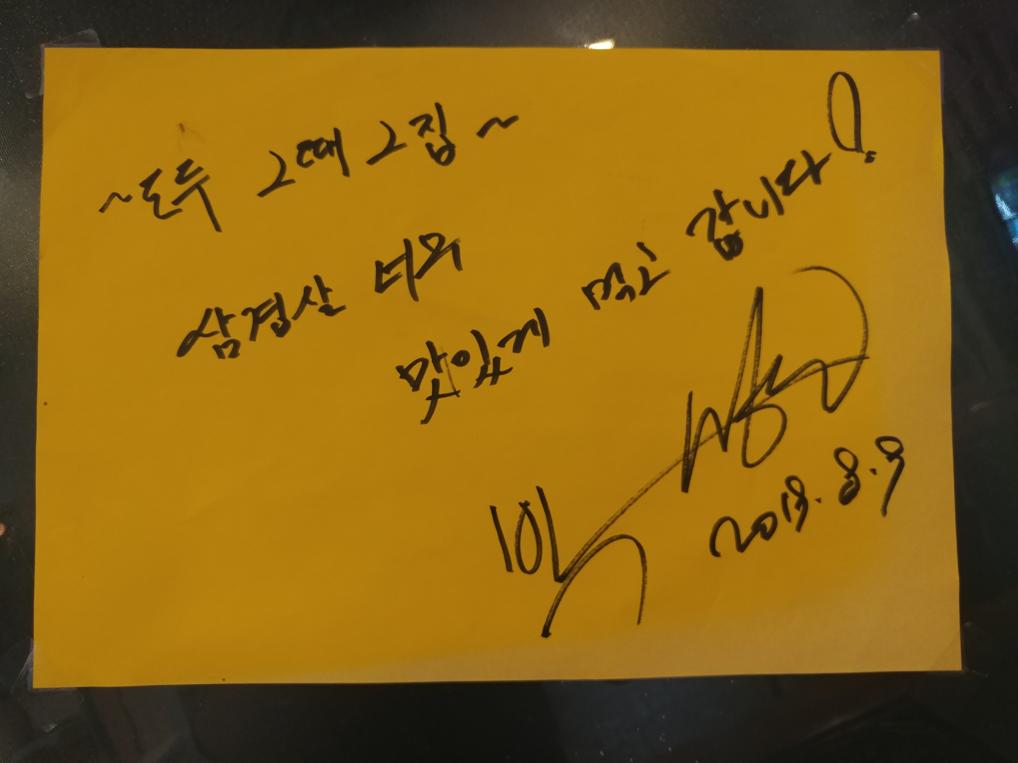 ~도두 그때 그집~
삼겹살 너와
맛있게 먹고 갑니다!
2018.8.9